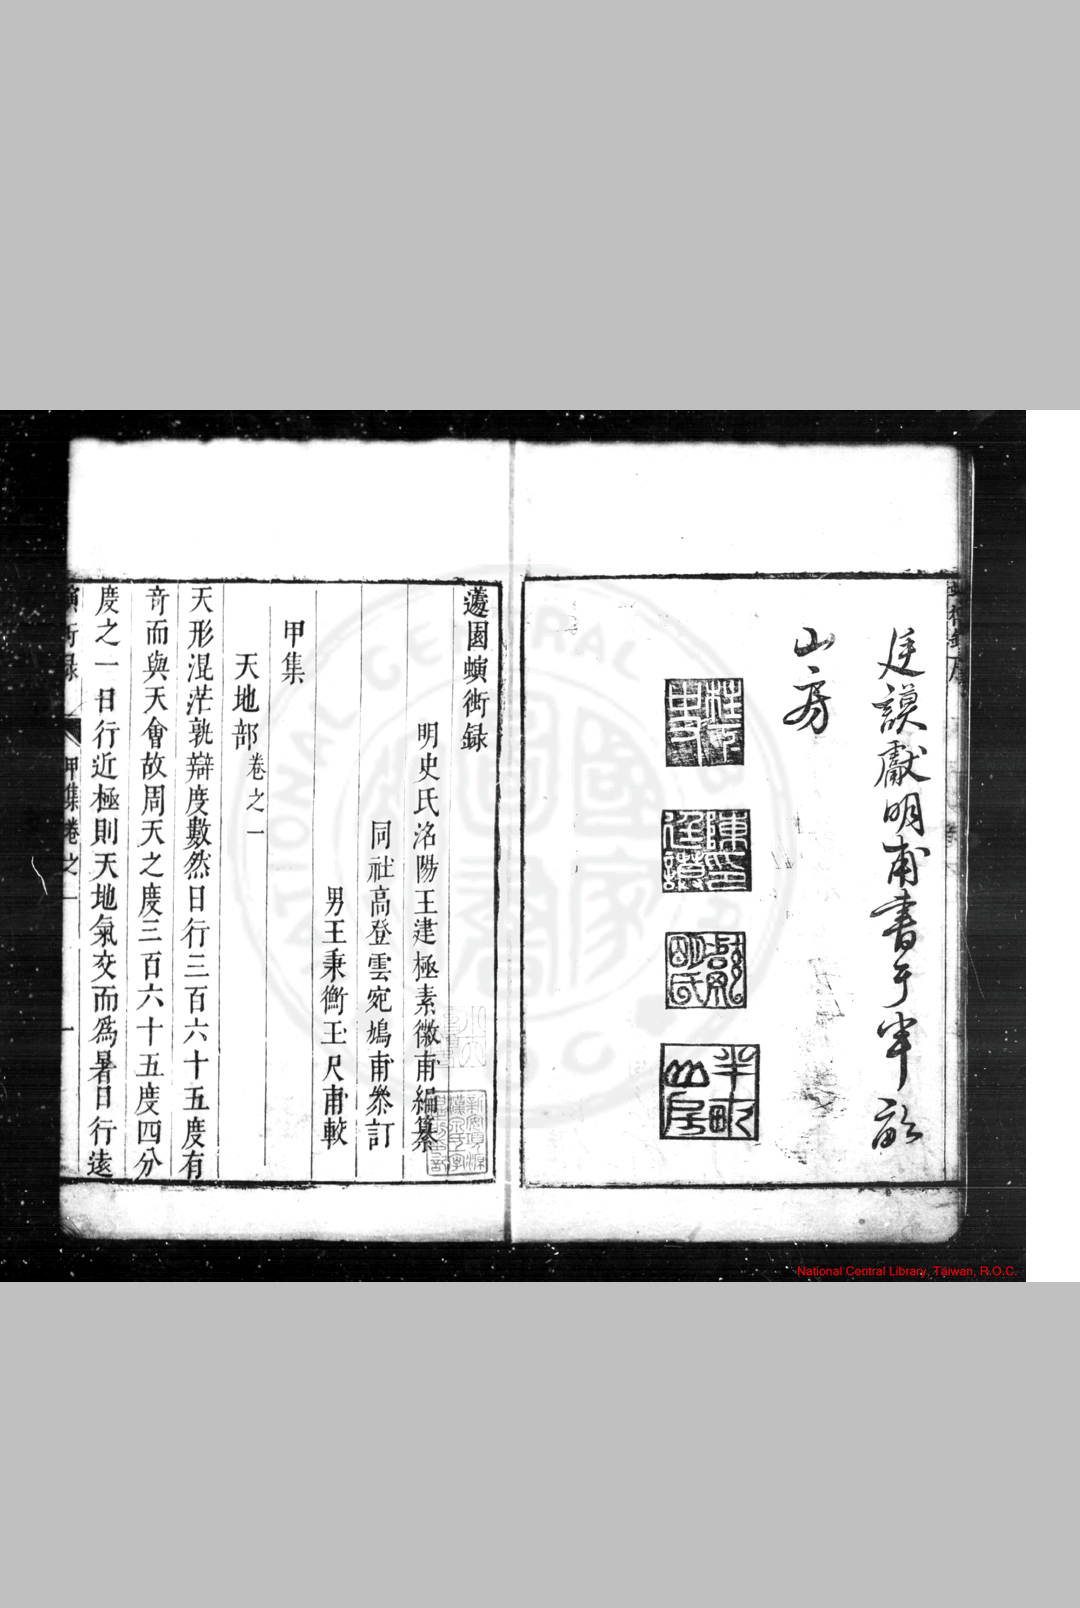 廷謨獻明甫書于半畝
山房
半畝山房
蘧園蠙衖録
明史氏洛陽王建極素徽甫編纂
同社高登雲宛鳩甫叅訂
男王秉衡玉尺甫較
甲集
天地部卷之一
天形混茫孰辯度數然日行三百六十五度有
竒而與天會故周天之度三百六十五度四分
度之一日行近極則天地氣交而為暑日行遠
甲集卷之一
一
National Central Library, Taiwan, R.O.C.